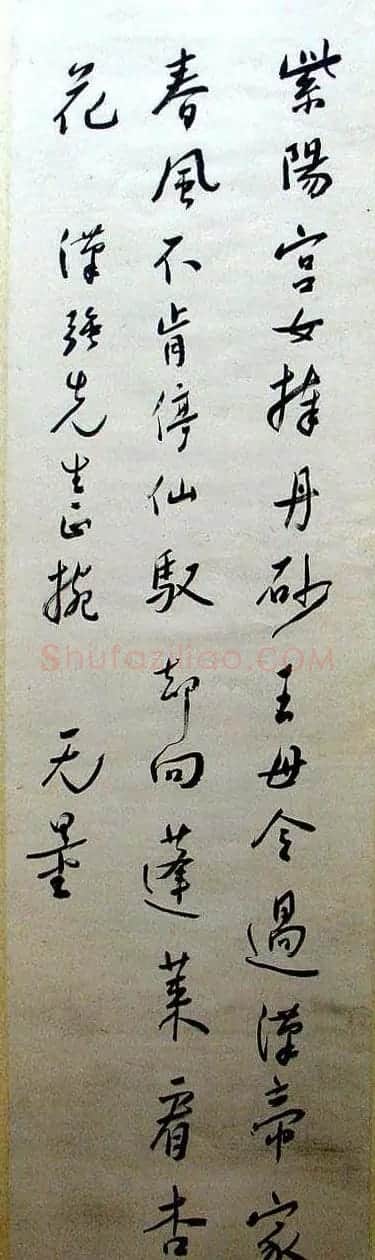 紫陽宮女捧丹砂王母令過漢帝家
春風不肯停仙馭却向蓬萊看杏
花 漢強先生正捥 无量
Shufaziliao.COM